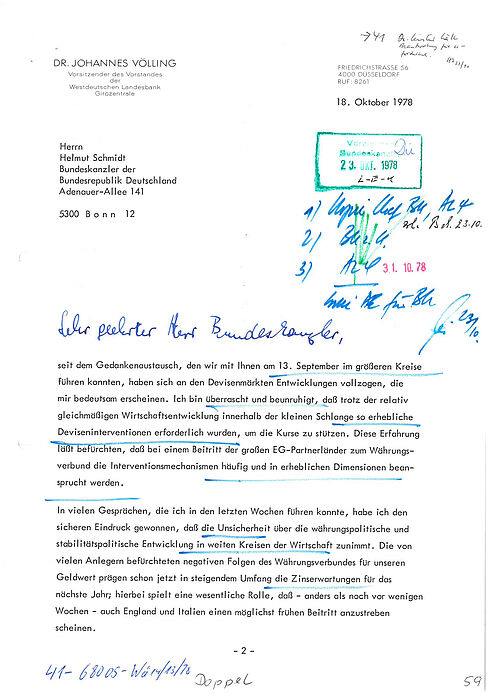 → 41
DR. JOHANNES VÖLLING
Vorsitzender des Vorstandes
der
Westdeutschen Landesbank
Girozentrale
FRIEDRICHSTRASSE 56
4000 DÜSSELDORF
RUF: 8261
18. Oktober 1978
Herrn
Helmut Schmidt
Bundeskanzler der
Bundesrepublik Deutschland
Adenauer-Allee 141
5300 Bonn 12
23. OKT. 1978
1)
2)
3) AL 4 31. 10. 78
Sehr geehrter Herr Bundeskanzler,
seit dem Gedankenaustausch, den wir mit Ihnen am 13. September im größeren Kreise
führen konnten, haben sich an den Devisenmärkten Entwicklungen vollzogen, die
mir bedeutsam erscheinen. Ich bin überrascht und beunruhigt, daß trotz der relativ
gleichmäßigen Wirtschaftsentwicklung innerhalb der kleinen Schlange so erhebliche
Deviseninterventionen erforderlich wurden, um die Kurse zu stützen. Diese Erfahrung
läßt befürchten, daß bei einem Beitritt der großen EG-Partnerländer zum Währungs-
verbund die Interventionsmechanismen häufig und in erheblichen Dimensionen bean-
sprucht werden.
In vielen Gesprächen, die ich in den letzten Wochen führen konnte, habe ich den
sicheren Eindruck gewonnen, daß die Unsicherheit über die währungspolitische und
stabilitätspolitische Entwicklung in weiten Kreisen der Wirtschaft zunimmt. Die von
vielen Anlegern befürchteten negativen Folgen des Währungsverbundes für unseren
Geldwert prägen schon jetzt in steigendem Umfang die Zinserwartungen für das
nächste Jahr; hierbei spielt eine wesentliche Rolle, daß - anders als noch vor wenigen
Wochen - auch England und Italien einen möglichst frühen Beitritt anzustreben
scheinen.
- 2 -
Doppel
59